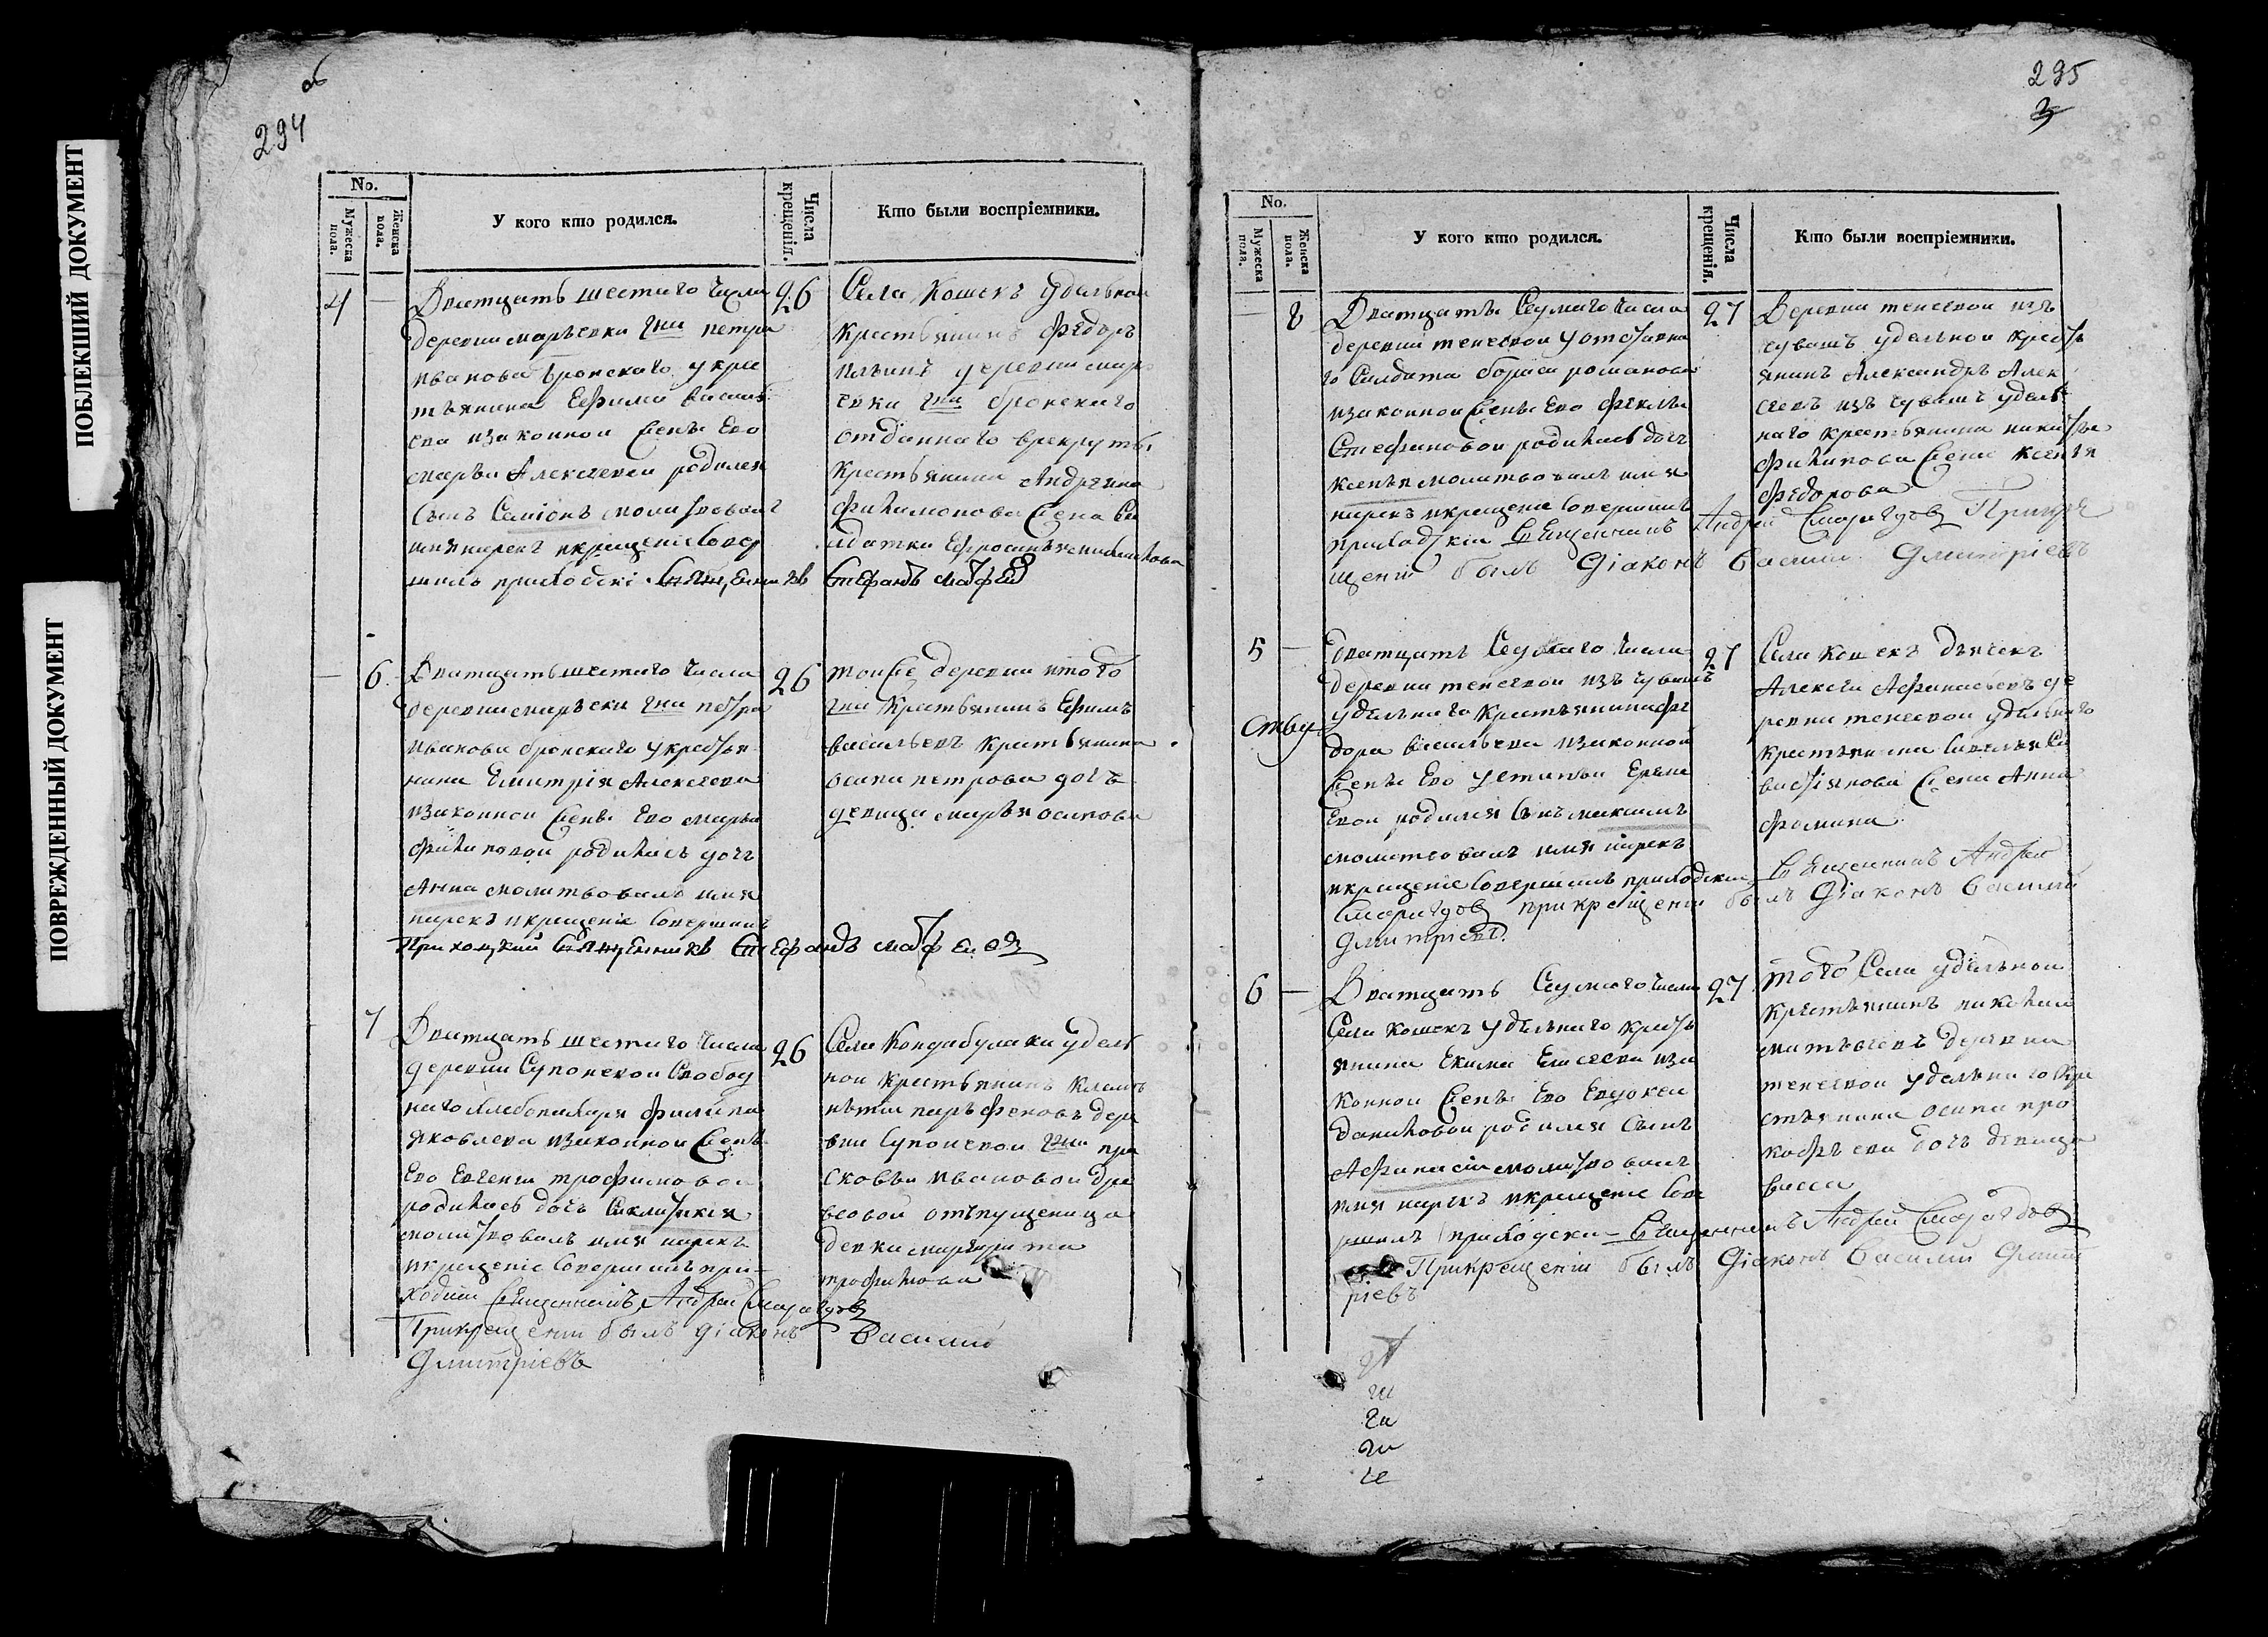 ПОБЛЕКШИЙ ДОКУМЕНТ
ПОВРЕЖДЕННЫЙ ДОКУМЕНТ
об
294
No.
Мужеска пола.
Женска пола.
У кого кто родился.
Числа крещенія.
Кто были воспріемники.
4 —
Дватцать шестаго числа
деревни марьевки гна петра
иванова бронскаго у кре
тьянина Ефима Василь
ева изаконной жены Ево
марьи Алексеевой родился
сынъ Симіонъ молитвовалъ
имянарекъ икрещеніе Совер
шилъ приходскі Священникъ Стефанъ Матфеев
26
Села Кошекъ удельной
крестьянинъ федоръ
ильинъ деревни марь
евки гна бронскаго
отданнаго врекруты
крестьянина Андреяна
филимонова жена Са
лдатка Ефросинья
— 6
Дватцать шестаго числа
деревни марьевки гна петра
иванова бронскаго укрестья
нина Дмитрія Алексеева
изаконной жены Ево марьи
филиповой родилась дочь
Анна молитвовалъ имя
нарекъ икрещеніе Совершилъ
Приходский Священникъ Стефанъ матфеевъ
26
тойже деревни итого
гна Крестьянинъ Ефимъ
васильевъ крестьянина
осипа петрова дочь
девица марья осипова
7
Дватцать шестаго числа
деревни Супоневой Свобод
наго хлебопахаря филипа
яковлева изаконной жены
Ево Евгении трофимовой
родилась дочь Синклитикия
молитвовалъ имя нарекъ
икрещеніе Совершилъ при-
ходский Священникъ Андрей Смарагдов
Прикрещении былъ діаконъ Василий
Дмитріевъ
26
Села Кондабулака удель
ной крестьянинъ
парфеновъ дере
вни Супоневой гжи пра
сковьи ивановой
отпущеница
девка маргарита
трофимова
295
3
No.
Мужеска пола.
Женска пола.
У кого кто родился.
Числа крещенія.
Кто были воспріемники.
— 8
Дватцать Седмаго числа
деревни тенеевой уотставна
го Салдата бориса романова
изаконной жены Ево феклы
Стефановой родилась дочь
ксенья молитвовалъ имя
нарекъ икрещеніе Совершилъ
приходскій Священникъ Андрей Смарагдов Прикре
щеніи былъ Діаконъ Василий Дмитріевъ
27
Деревни тенеевой изъ
чувашъ удельной кресть
янинъ Александръ Алек
сеевъ изъ чувашъ удель
наго крестьянина никиты
филипова жена ксенья
федорова
5 —
Дватцать Седмаго числа
деревни тенеевой изъ чувашъ
удельнаго крестьянина фе
дора васильева изаконной
жены Ево устиньи Ереме
евой родился сынъ максимъ
молитвовалъ имя нарекъ
икрещеніе Совершилъ приходский Священникъ Андрей
Смарагдов прикрещеніи былъ Діаконъ Василий
Дмитріевъ.
27
Села Кошекъ дьячекъ
Алексей Афанасьевъ де
ревни тенеевой удельнаго
крестьянина Савелья Са
вастьянова жена Анна
фомина
6 —
Дватцать Седмаго числа
Села кошекъ удельнаго кресть
янина Екима Елисеева иза
конной жены Ево Евдокеи
даниловой родился сынъ
Афанасій молитвовалъ
имя нарекъ икрещеніе Сове
ршилъ приходский Священникъ Андрей Смарагдовъ
Прикрещеніи былъ Діаконъ Василий Дмит
ріевъ
27
того Села удельной
крестьянинъ николай
матвеевъ деревни
тенеевой удельнаго кре
стьянина осипа про
кофьева дочь девица
васса